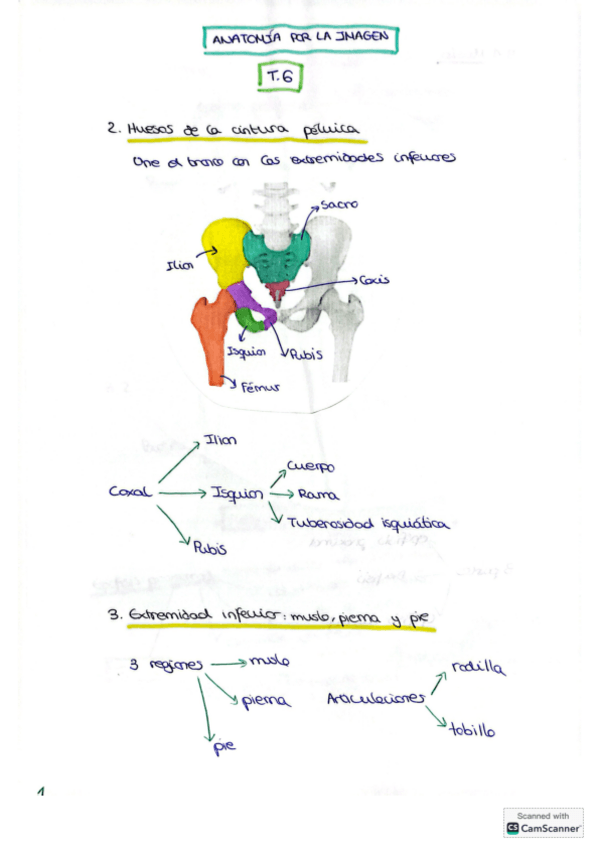 ANATOMÍA POR LA IMAGEN
T.6
2. Huesos de la cintura pélvica
Une el tronco con las extremidades inferiores
Sacro
Ilion
Coxis
Isquion
Pubis
Fémur
Ilion
Cuerpo
Coxal
Isquion
Rama
Tuberosidad isquiática
Pubis
3. Extremidad inferior: muslo, pierna y pie
3 regiones
muslo
rodilla
pierna
Articulaciones
tobillo
pie
1
Scanned with
CS CamScanner